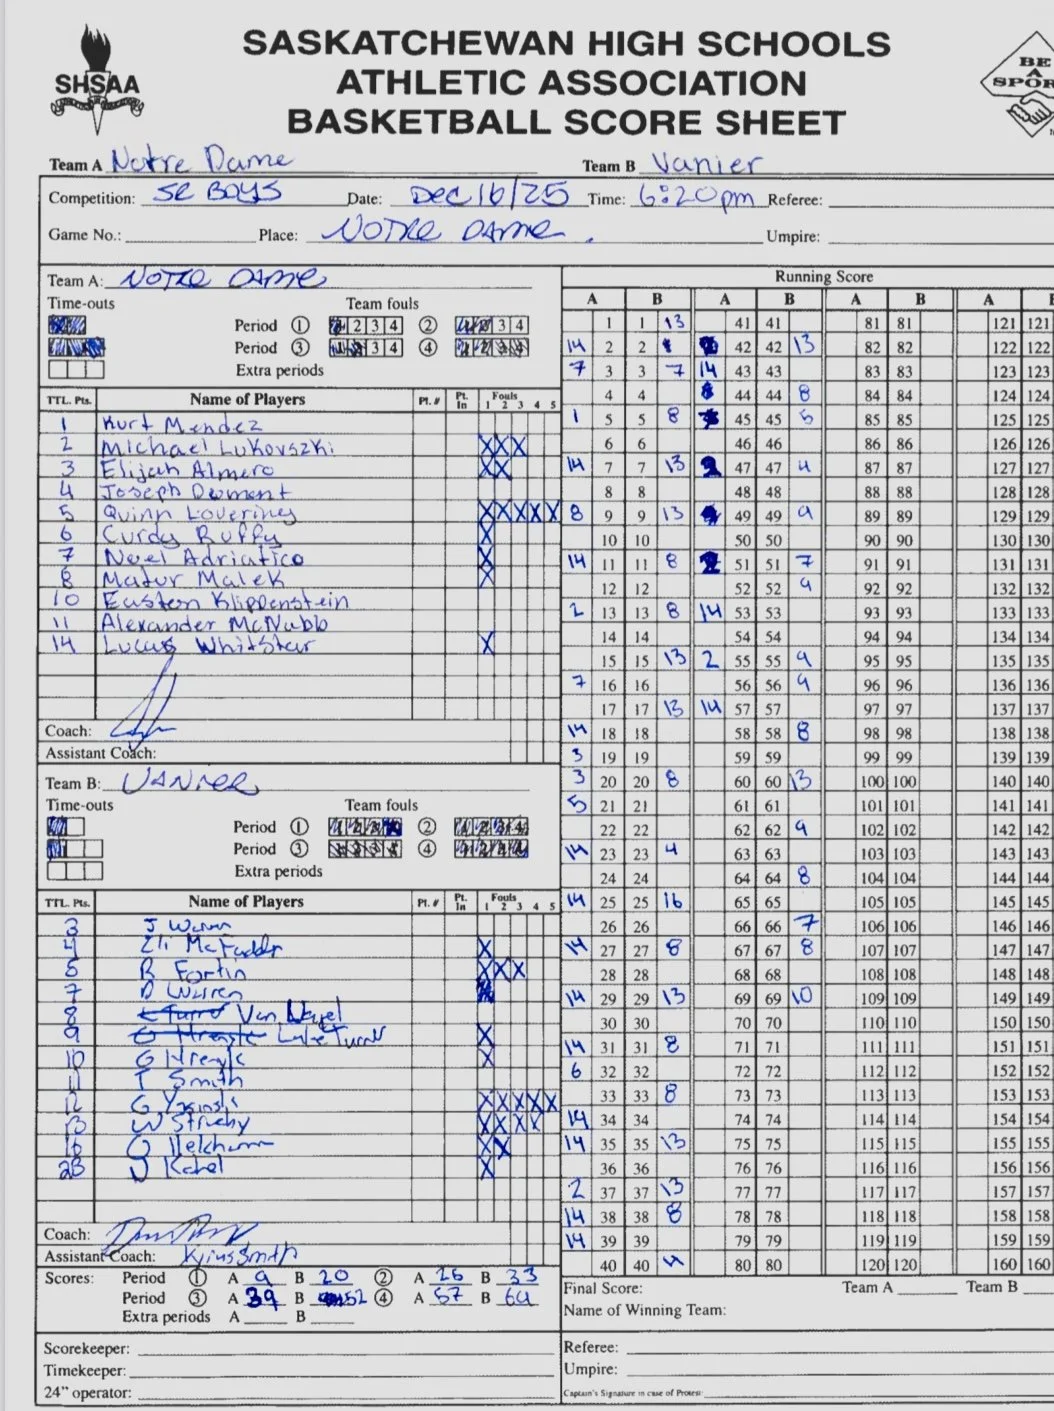 SASKATCHEWAN HIGH SCHOOLS
ATHLETIC ASSOCIATION
BASKETBALL SCORE SHEET
SHSAA
BE
A
SPOR
Team A Notre Dame Team B Vanier
Competition: SR BOYS Date: Dec 16/25 Time: 6:20pm Referee:
Game No.: Place: NOTRE DAME. Umpire:
Team A: NOTRE DAME
Time-outs Team fouls
Period 1 1 2 3 4 2 1 2 3 4
Period 3 1 2 3 4 4 1 2 3 4
Extra periods
TTL. Pts. Name of Players Pt. # Pt. In Fouls 1 2 3 4 5
1 Kurt Mendez
2 Michael Lukovszki X X X
3 Elijah Almero X X
4 Joseph
5 Quinn Lovering X X X X X
6 Curdy Ruffy X
7 Noel Adriatico X
8 Matur Malek X
10 Easten Klippenstein
11 Alexander McNabb
14 Lucas WhitStar X
Coach:
Assistant Coach:
Team B: VANIER
Time-outs Team fouls
Period 1 1 2 3 4 2 1 2 3 4
Period 3 1 2 3 4 4 1 2 3 4
Extra periods
TTL. Pts. Name of Players Pt. # Pt. In Fouls 1 2 3 4 5
3 J
4 Eli McFadden X
5 R Fortin X X X
7 D Warren
8 Van
9 Luke Turn X
10 G X
11 T Smith
12 G X X X X X
13 W X X X X
16 O X X
23 J Kabel X
Coach:
Assistant Coach: Kyrus Smith
Scores: Period 1 A 9 B 20 2 A 26 B 33
Period 3 A 39 B 52 4 A 57 B 69
Extra periods A B
Scorekeeper:
Timekeeper:
24" operator:
Running Score
A B A B A B A
1 1 13 41 41 81 81 121 121
14 2 2 42 42 13 82 82 122 122
7 3 3 7 14 43 43 83 83 123 123
4 4 8 44 44 8 84 84 124 124
1 5 5 8 45 45 5 85 85 125 125
6 6 46 46 86 86 126 126
14 7 7 13 2 47 47 4 87 87 127 127
8 8 48 48 88 88 128 128
8 9 9 13 49 49 9 89 89 129 129
10 10 50 50 90 90 130 130
14 11 11 8 2 51 51 7 91 91 131 131
12 12 52 52 9 92 92 132 132
2 13 13 8 14 53 53 93 93 133 133
14 14 54 54 94 94 134 134
15 15 13 2 55 55 9 95 95 135 135
7 16 16 56 56 9 96 96 136 136
17 17 13 14 57 57 97 97 137 137
14 18 18 58 58 8 98 98 138 138
3 19 19 59 59 99 99 139 139
3 20 20 8 60 60 13 100 100 140 140
5 21 21 61 61 101 101 141 141
22 22 62 62 9 102 102 142 142
14 23 23 4 63 63 103 103 143 143
24 24 64 64 8 104 104 144 144
14 25 25 16 65 65 105 105 145 145
26 26 66 66 7 106 106 146 146
14 27 27 8 67 67 8 107 107 147 147
28 28 68 68 108 108 148 148
14 29 29 13 69 69 10 109 109 149 149
30 30 70 70 110 110 150 150
14 31 31 8 71 71 111 111 151 151
6 32 32 72 72 112 112 152 152
33 33 8 73 73 113 113 153 153
14 34 34 74 74 114 114 154 154
14 35 35 13 75 75 115 115 155 155
36 36 76 76 116 116 156 156
2 37 37 13 77 77 117 117 157 157
14 38 38 8 78 78 118 118 158 158
14 39 39 79 79 119 119 159 159
40 40 4 80 80 120 120 160 160
Final Score: Team A Team B
Name of Winning Team:
Referee:
Umpire:
Captain's Signature in case of Protest: